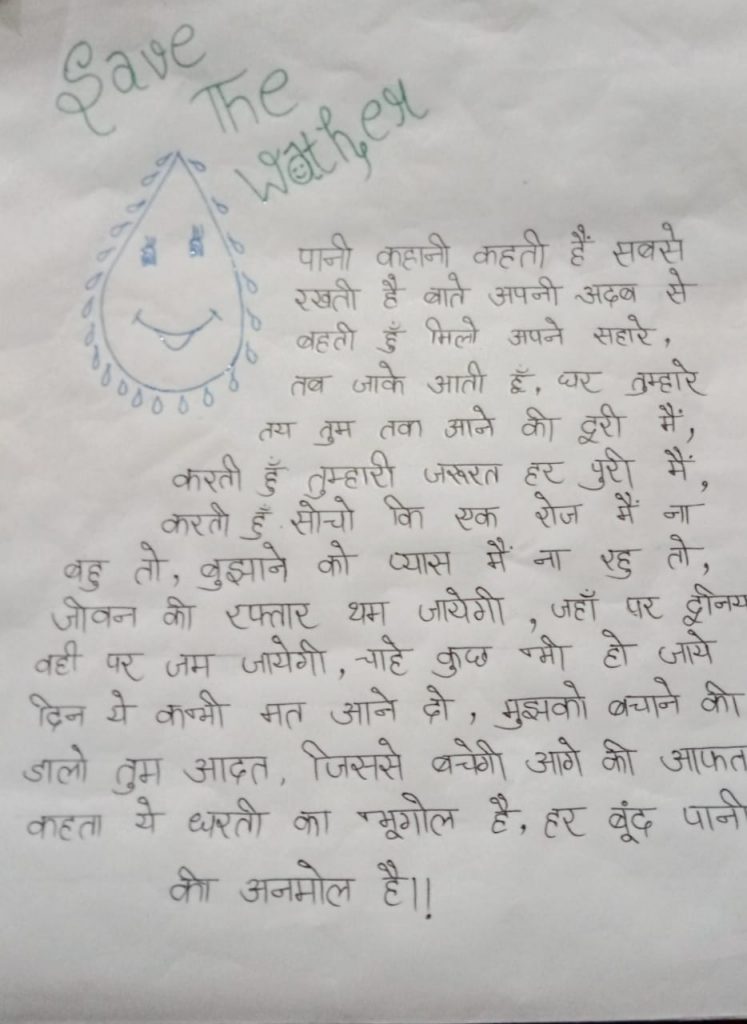 Save
The
Wather
पानी कहानी कहती हैं सबसे
रखती है बाते अपनी अदब से
बहती हुँ मिलो अपने सहारे,
तब जाके आती हुँ, घर तुम्हारे
तय तुम तक आने की दूरी मैं,
करती हुँ तुम्हारी जरूरत हर पुरी मैं,
करती हुँ सोचो कि एक रोज मैं ना
बहु तो, बुझाने को प्यास मैं ना रहु तो,
जीवन की रफ्तार थम जायेगी, जहाँ पर
वही पर जम जायेगी, चाहे कुछ भी हो जाये
दिन ये कभी मत आने दो, मुझको बचाने की
डालो तुम आदत, जिससे बचेगी आगे की आफत
कहता ये धरती का भूगोल है, हर बूंद पानी
की अनमोल है।।